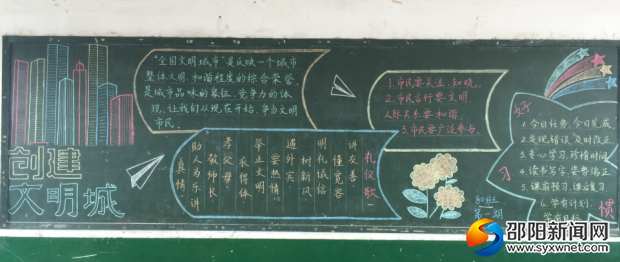 创建
文明城
“全国文明城市”是反映一个城市
整体文明、和谐程度的综合荣誉,
是城市品味的象征、竞争力的体
现,让我们从现在开始,争当文明
市民。
礼仪歌
讲友善
懂宽容
明礼诚信
树新风
遇外宾
要热情
举止文明
衣得体
孝父母
敬师长
助人为乐讲
真情
1.市民要关注、知晓。
2.市民言行要文明,
人际关系要和谐。
3.市民要广泛参与。
80班
第一期
习
惯
1.今日任务,今日完成
2.发现错误,及时改正
3.专心学习,珍惜时间
4.读书写字,姿势端正
5.课前预习,课后复习
6.学有计划,
学有目标
邵阳新闻网
www.syxwnet.com